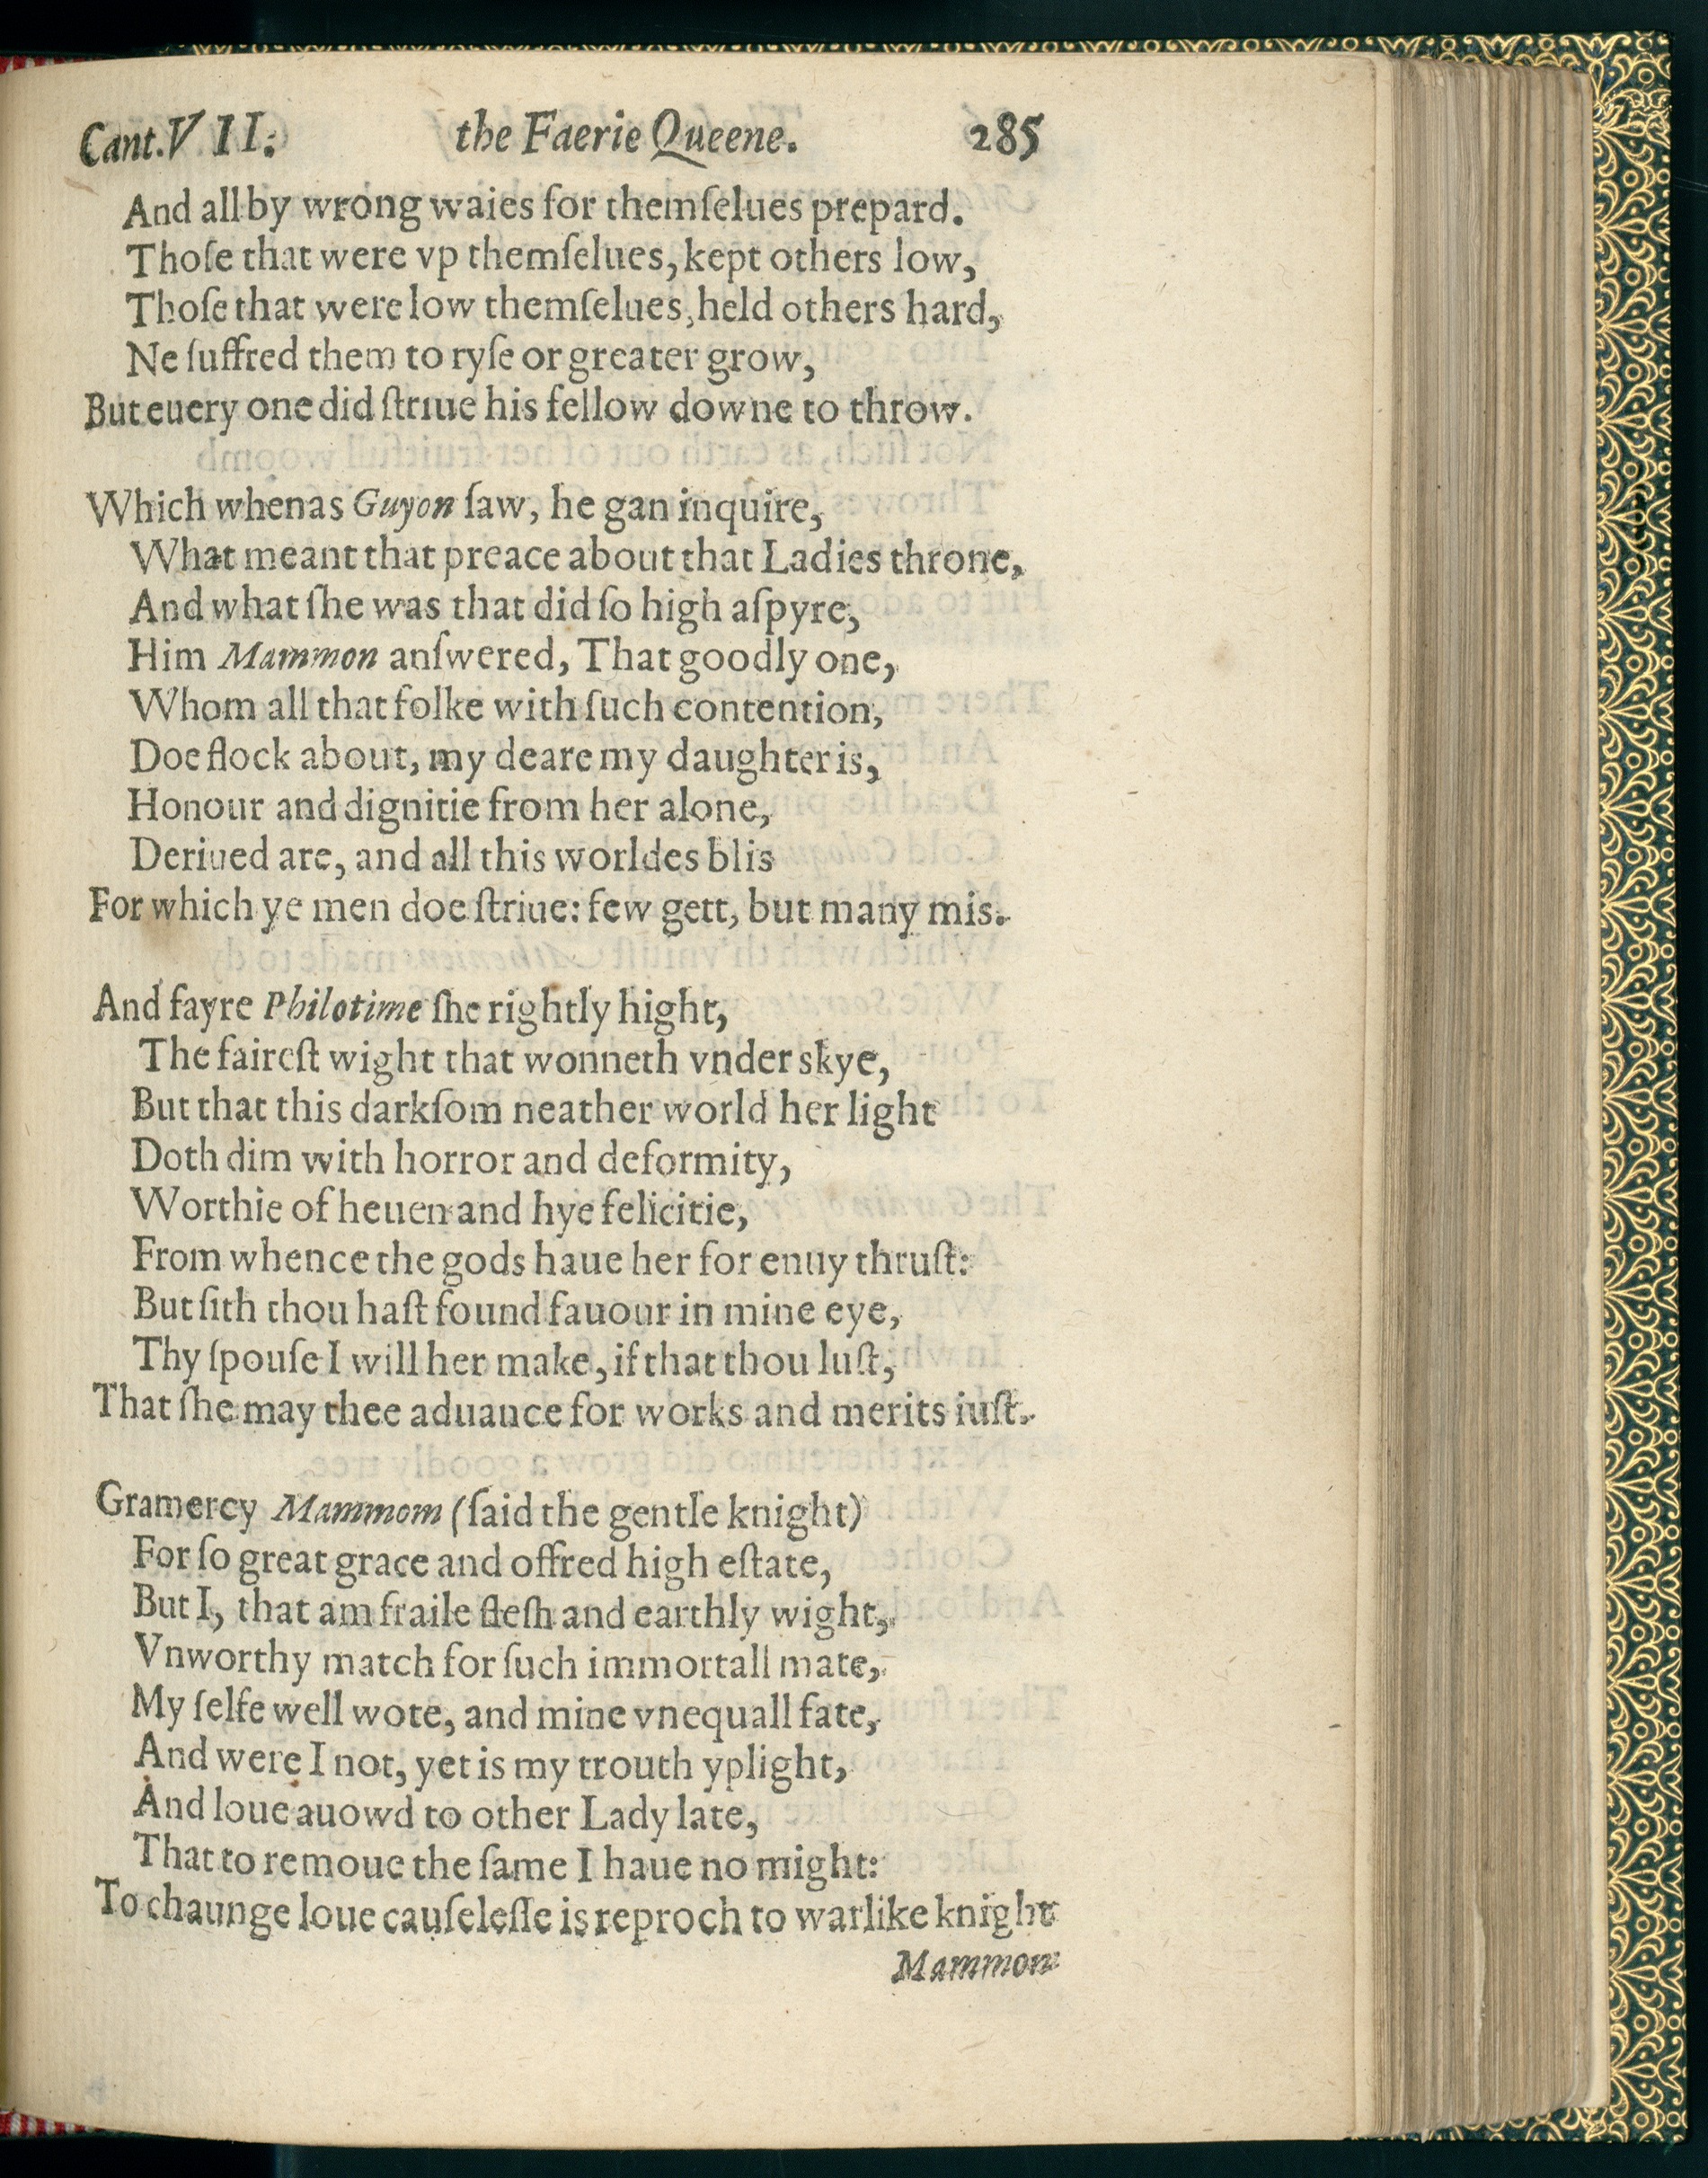 Cant. VII: the Faerie Queene. 285
And all by wrong waies for themſelues prepard.
Thoſe that were vp themſelues, kept others low,
Thoſe that were low themſelues, held others hard,
Ne ſuffred them to ryſe or greater grow,
But euery one did ſtriue his fellow downe to throw.
Which whenas Guyon ſaw, he gan inquire,
What meant that preace about that Ladies throne,
And what ſhe was that did ſo high aſpyre,
Him Mammon anſwered, That goodly one,
Whom all that folke with ſuch contention,
Doe flock about, my deare my daughter is,
Honour and dignitie from her alone,
Deriued are, and all this worldes blis
For which ye men doe ſtriue: few gett, but many mis.
And fayre Philotime ſhe rightly hight,
The faireſt wight that wonneth vnder skye,
But that this darkſom neather world her light
Doth dim with horror and deformity,
Worthie of heuen and hye felicitie,
From whence the gods haue her for enuy thruſt:
But ſith thou haſt found fauour in mine eye,
Thy ſpouſe I will her make, if that thou luſt,
That ſhe may thee aduauce for works and merits iuſt.
Gramercy Mammom (ſaid the gentle knight)
For ſo great grace and offred high eſtate,
But I, that am fraile fleſh and earthly wight,
Vnworthy match for ſuch immortall mate,
My ſelfe well wote, and mine vnequall fate,
And were I not, yet is my trouth yplight,
And loue auowd to other Lady late,
That to remoue the ſame I haue no might:
To chaunge loue cauſeleſſe is reproch to warlike knight
Mammon